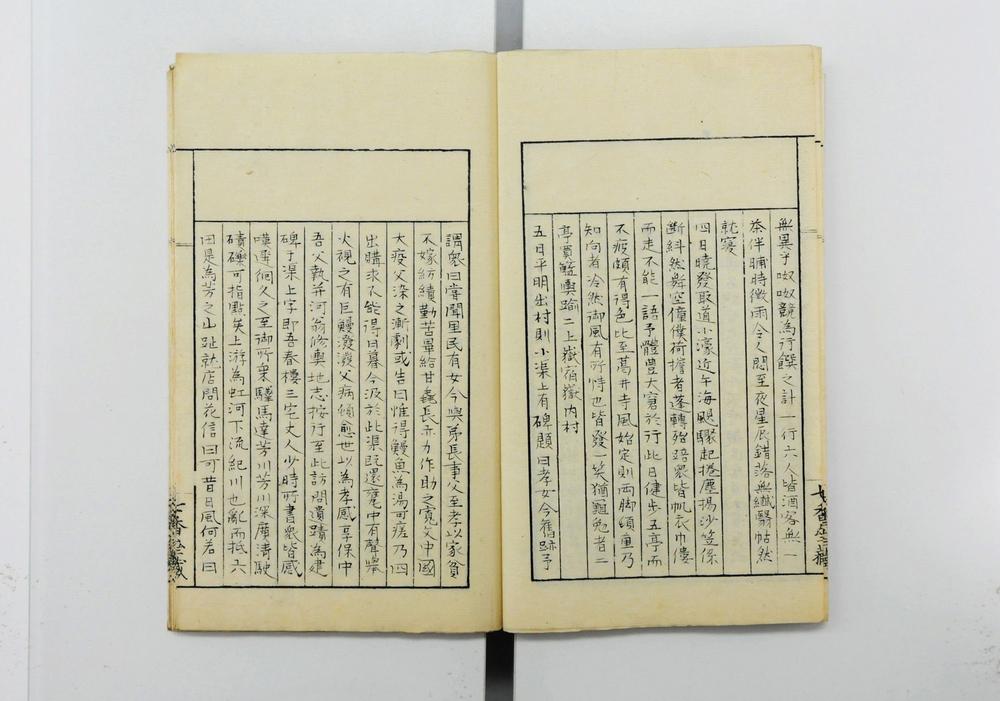 無異乎呶呶競為行饌之計一行六人皆酒客無一
茶伴晡時微雨令人悶至夜星辰錯落無纖翳帖然
就寢
四日曉發取道小濠近午海颶驟起捲塵揚沙笠係
斷紏然舞空僮僕荷擔者蓬轉殆踣衆皆帆衣巾僂
而走不能一語予體豊大窘於行此日健步五亭而
不疲頗有得色比至萬井寺風始定則両脚頗重乃
知向者泠然御風有所恃也皆發一笑猶黽勉者二
亭買籃輿踰二上嶽宿嶽内村
五日平明出村則小渠上有碑題曰孝女今舊跡予
謂衆曰嘗聞里民有女今與弟長事父至孝以家貧
不嫁紡績勤苦畢給甘毳長亦力作助之寛文中國
大疫父染之漸劇或告曰惟得鰻魚為湯可瘥乃四
出購求不能得日暮今汲於此渠既還甕中有聲擧
火視之有巨鰻潑潑父病傾愈世以為孝感享保中
吾父執并河翁修輿地志按行至此訪問遺蹟為建
碑于渠上字即吾春樓三宅丈人少時所書衆皆感
嘆遲徊久之至御所衆驩馬達芳川芳川深廣清駛
磧礫可指點矣上游為虹河下流紀川也亂而抵六
田是為芳之山趾就店問花信曰可昔日風何若曰